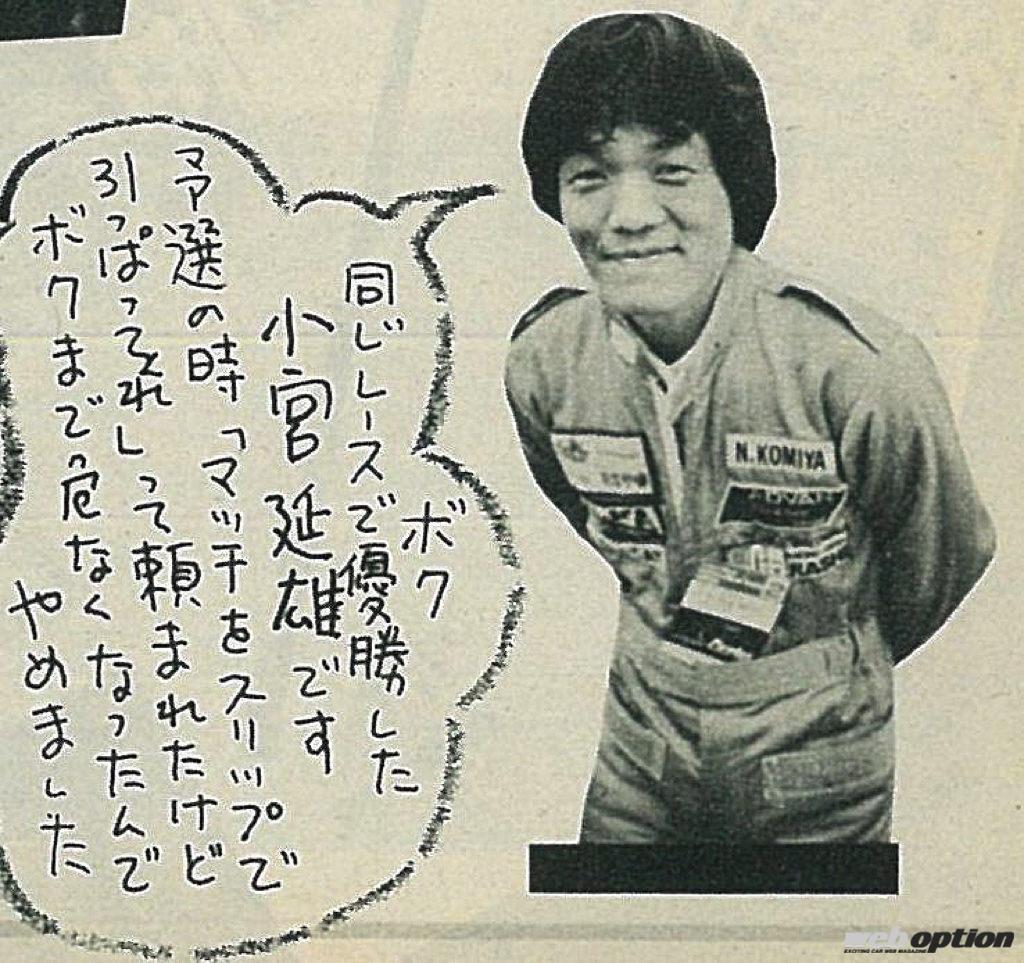 ボク
同じレースで優勝した
小宮延雄です
予選の時「マッチをスリップで
引っぱってくれ」って頼まれたけど
ボクまで危なくなったんで
やめました
N.KOMIYA
web option
EXCITING CAR WEB MAGAZINE